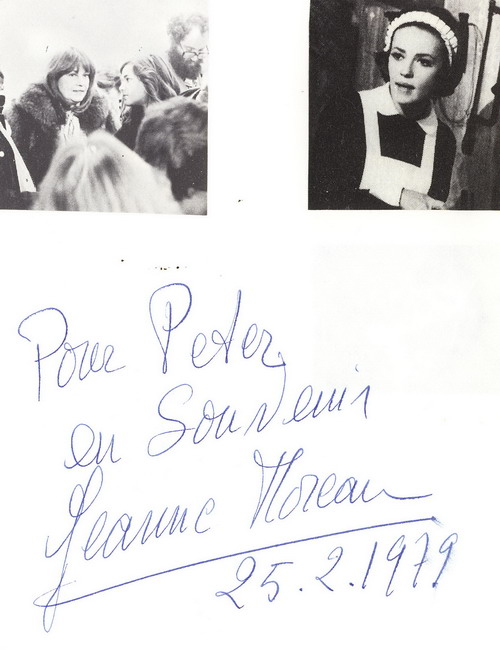 Pour Peter
en Souvenir
Jeanne Moreau
25.2.1979